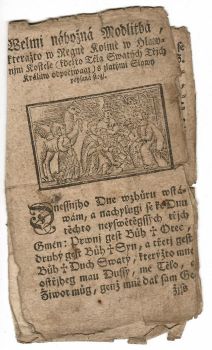 Welmi nábožná Modlitba
kteražto w Regne Kolině w Hlaw-
njm Kostele (kdežto Těla Swatých Třjch
Králůw odpočjwagj) s zlatými Slowy
wepsaná stogj.
Dnessnjho Dne wzhůru wstá-
wám, a nachylugi se ke Dnu
těchto neyswětěgssjch třjch
Gmen: Prwnj gest Bůh ✝ Otec,
druhý gest Bůh ✝ Syn, a třetj gest
Bůh ✝ Duch Swatý, kterýžto mne
ostřjhey mau Dussy, mé Tělo, a
Žiwot můg, genž mně dal sám Ge-
žiss